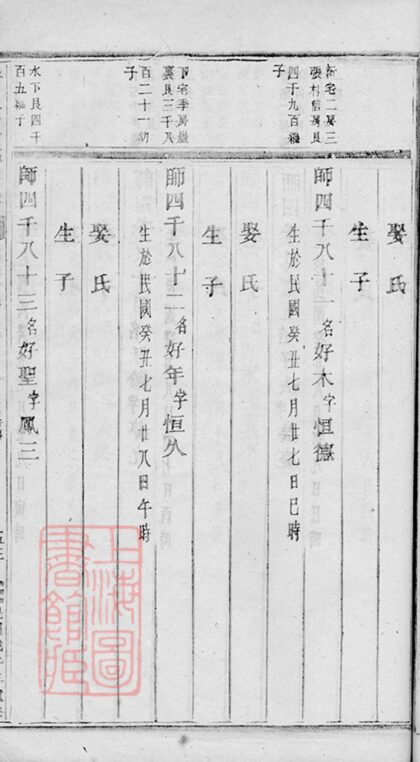 娶氏
生子
新宅二房三
張村信房良
四千九百穩
子
師四千八十一名好木字恒德
生於民國癸丑七月廿七日巳時
娶氏
生子
下宅季房嚴
裏良三千八
百二十一幼
子
師四千八十二名好年字恒久
生於民國癸丑七月廿八日午時
娶氏
生子
水下良四千
百五
子
師四千八十三名好聖字鳳三
上海圖
書館